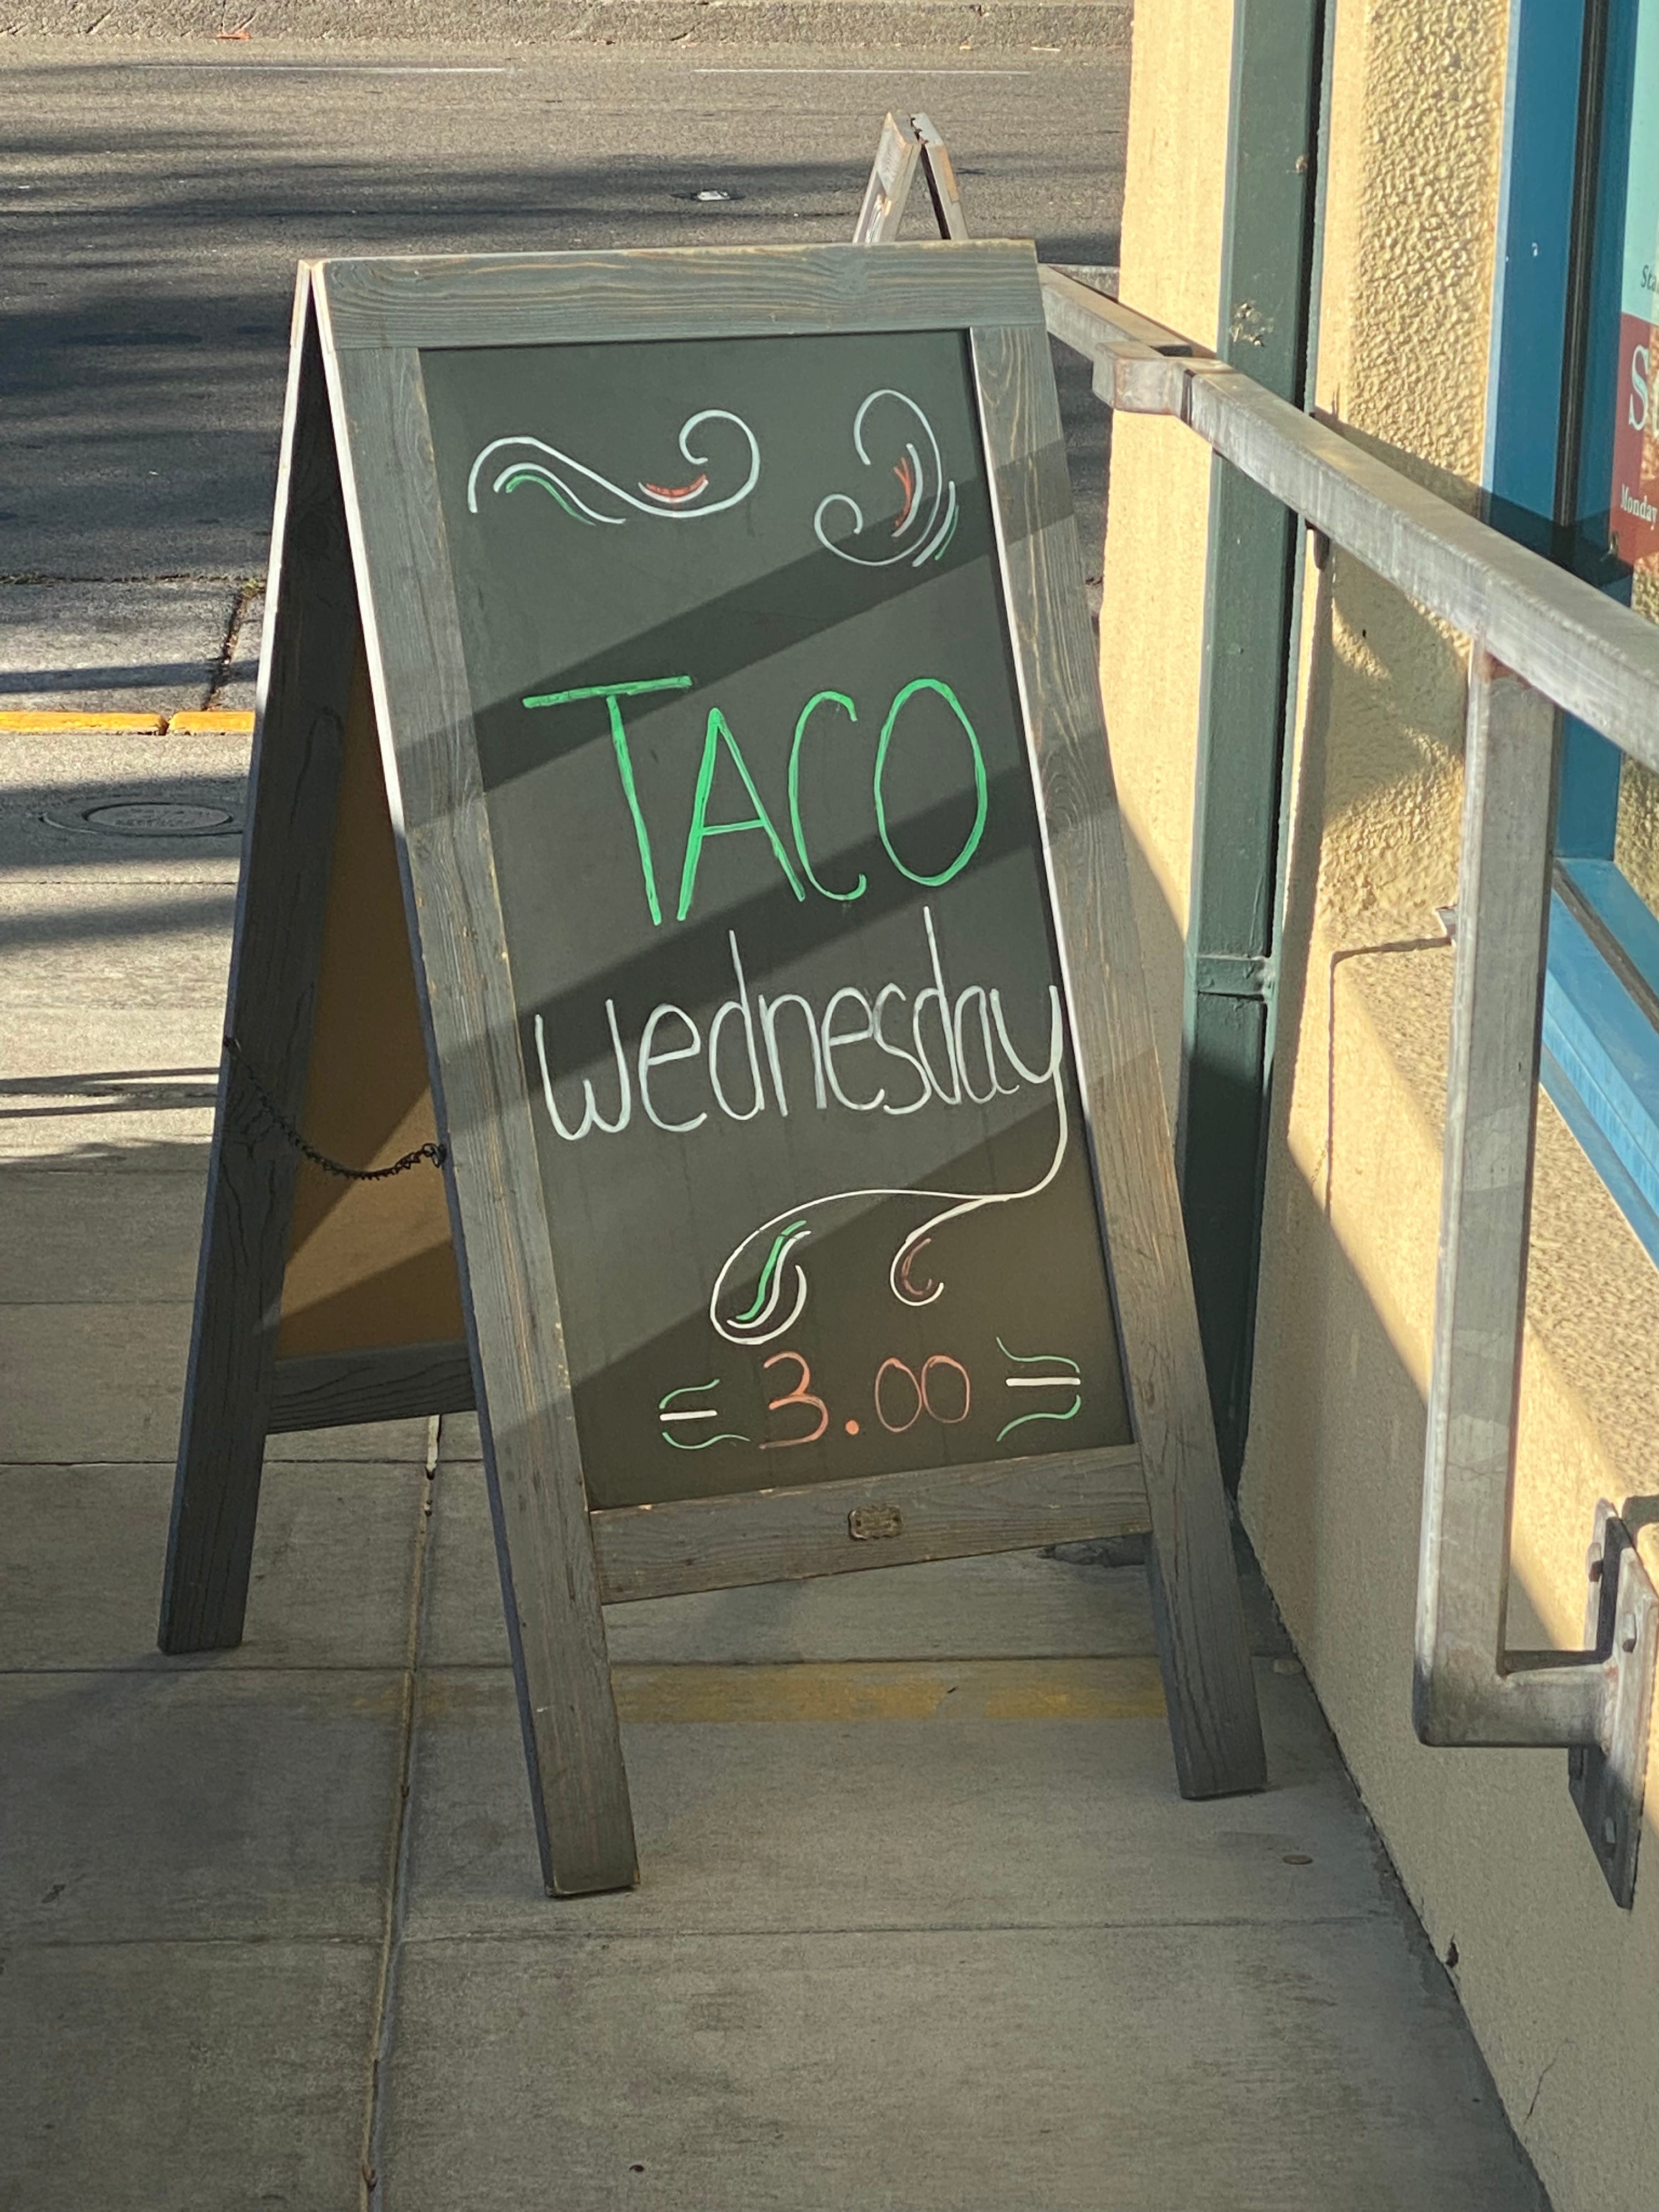 TACO
wednesday
3.00
Monday